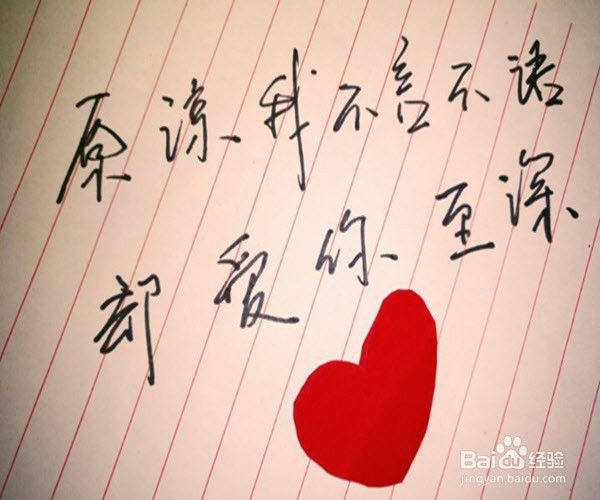 原谅我不言不语
却爱你至深
Baidu经验
jingyan.baidu.com